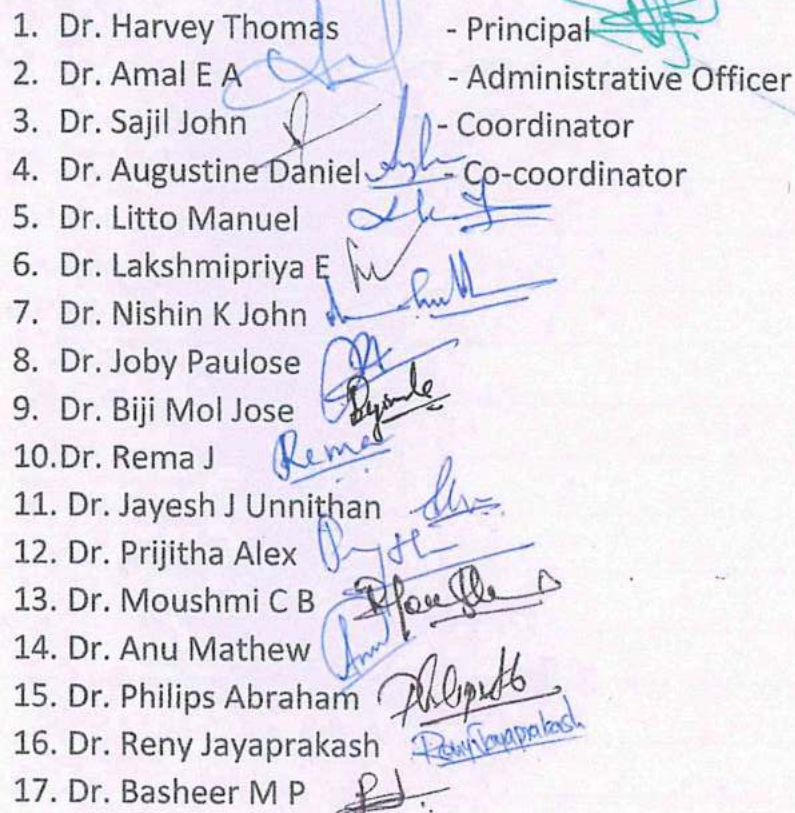 1. Dr. Harvey Thomas - Principal
2. Dr. Amal E A - Administrative Officer
3. Dr. Sajil John - Coordinator
4. Dr. Augustine Daniel - Co-coordinator
5. Dr. Litto Manuel
6. Dr. Lakshmipriya E
7. Dr. Nishin K John
8. Dr. Joby Paulose
9. Dr. Biji Mol Jose
10.Dr. Rema J Rema
11. Dr. Jayesh J Unnithan
12. Dr. Prijitha Alex
13. Dr. Moushmi C B
14. Dr. Anu Mathew Anu
15. Dr. Philips Abraham
16. Dr. Reny Jayaprakash RenyJayaprakash
17. Dr. Basheer M P